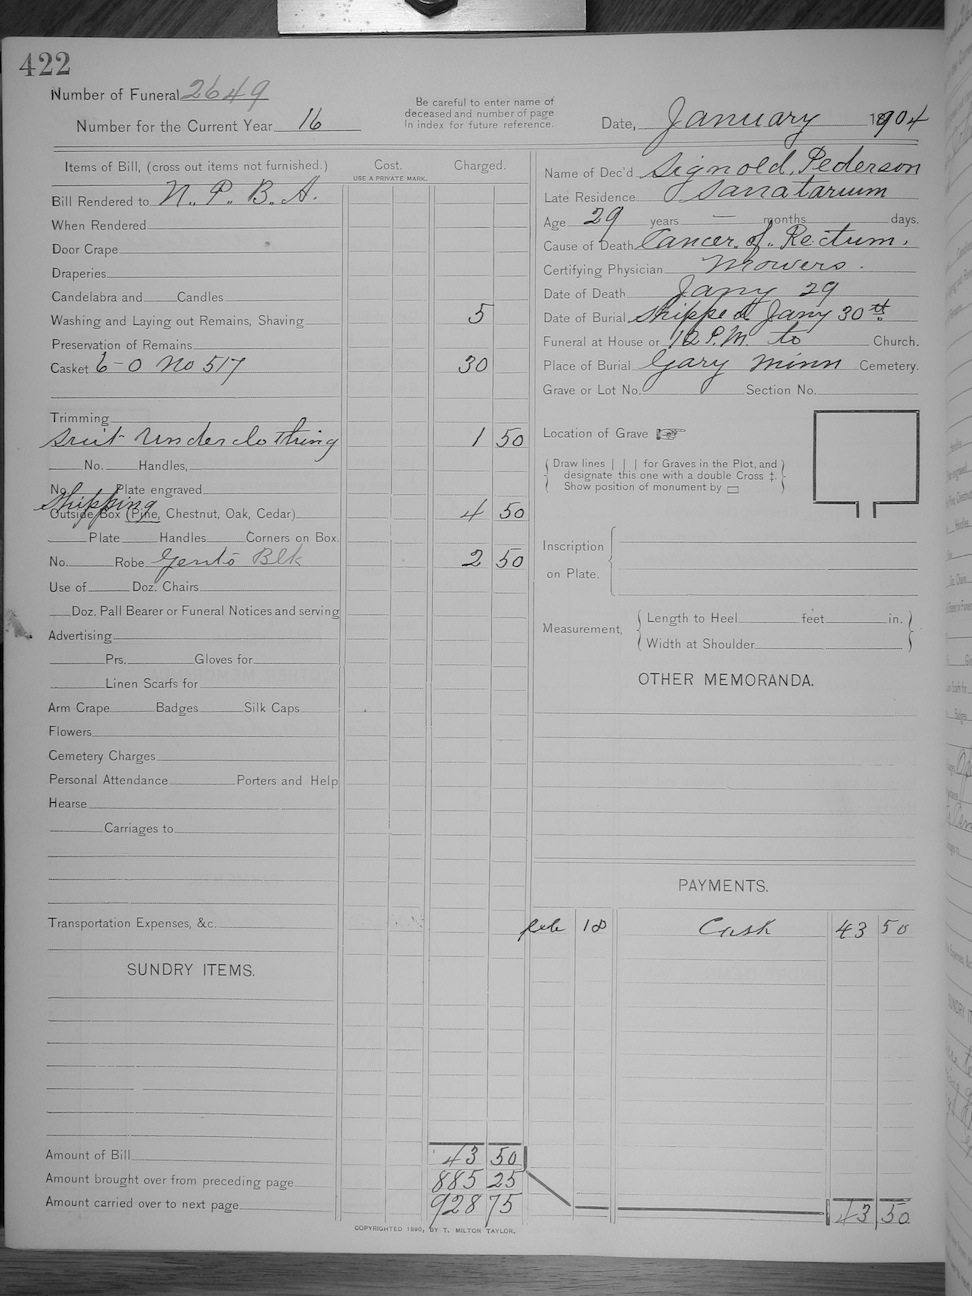 422
Number of Funeral 2649
Number for the Current Year 16
Be careful to enter name of
deceased and number of page
in index for future reference.
Date, January 1904
Items of Bill, (cross out items not furnished.) Cost. Charged.
USE A PRIVATE MARK.
Bill Rendered to N. P. B. A.
When Rendered
Door Crape
Draperies
Candelabra and Candles
Washing and Laying out Remains, Shaving 5
Preservation of Remains
Casket 6-0 No 517 30
Trimming
Suit Underclothing 1 50
No. Handles,
No. Plate engraved
Shipping
Outside Box (Pine, Chestnut, Oak, Cedar) 4 50
Plate Handles Corners on Box.
No. Robe Gents Blk 2 50
Use of Doz. Chairs
Doz. Pall Bearer or Funeral Notices and serving
Advertising
Prs. Gloves for
Linen Scarfs for
Arm Crape Badges Silk Caps
Flowers
Cemetery Charges
Personal Attendance Porters and Help
Hearse
Carriages to
Transportation Expenses, &c.
SUNDRY ITEMS.
Amount of Bill 43 50
Amount brought over from preceding page 885 25
Amount carried over to next page 928 75
COPYRIGHTED 1890, BY T. MILTON TAYLOR.
Name of Dec'd Signold Pederson
Late Residence Sanatarium
Age 29 years — months days.
Cause of Death Cancer of Rectum.
Certifying Physician Mowers.
Date of Death Jany 29
Date of Burial Shipped Jany 30th
Funeral at House or 12 P.M. to Church.
Place of Burial Gary Minn Cemetery.
Grave or Lot No. Section No.
Location of Grave ☞
Draw lines | | | for Graves in the Plot, and
designate this one with a double Cross ‡.
Show position of monument by ▭
Inscription
on Plate.
Measurement,
Length to Heel feet in.
Width at Shoulder
OTHER MEMORANDA.
PAYMENTS.
Feb 18 Cash 43 50
43 50